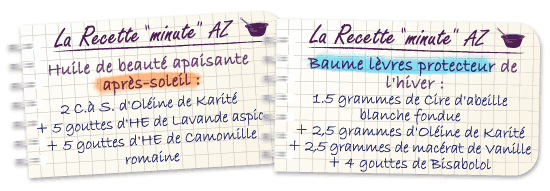 La Recette "minute" AZ
Huile de beauté apaisante
après-soleil :
2 C.à S. d'Oléine de Karité
+ 5 gouttes d'HE de Lavande aspic
+ 5 gouttes d'HE de Camomille
romaine
La Recette "minute" AZ
Baume lèvres protecteur de
l'hiver :
1.5 grammes de Cire d'abeille
blanche fondue
+ 2,5 grammes d'Oléine de Karité
+ 2,5 grammes de macérat de Vanille
+ 4 gouttes de Bisabolol